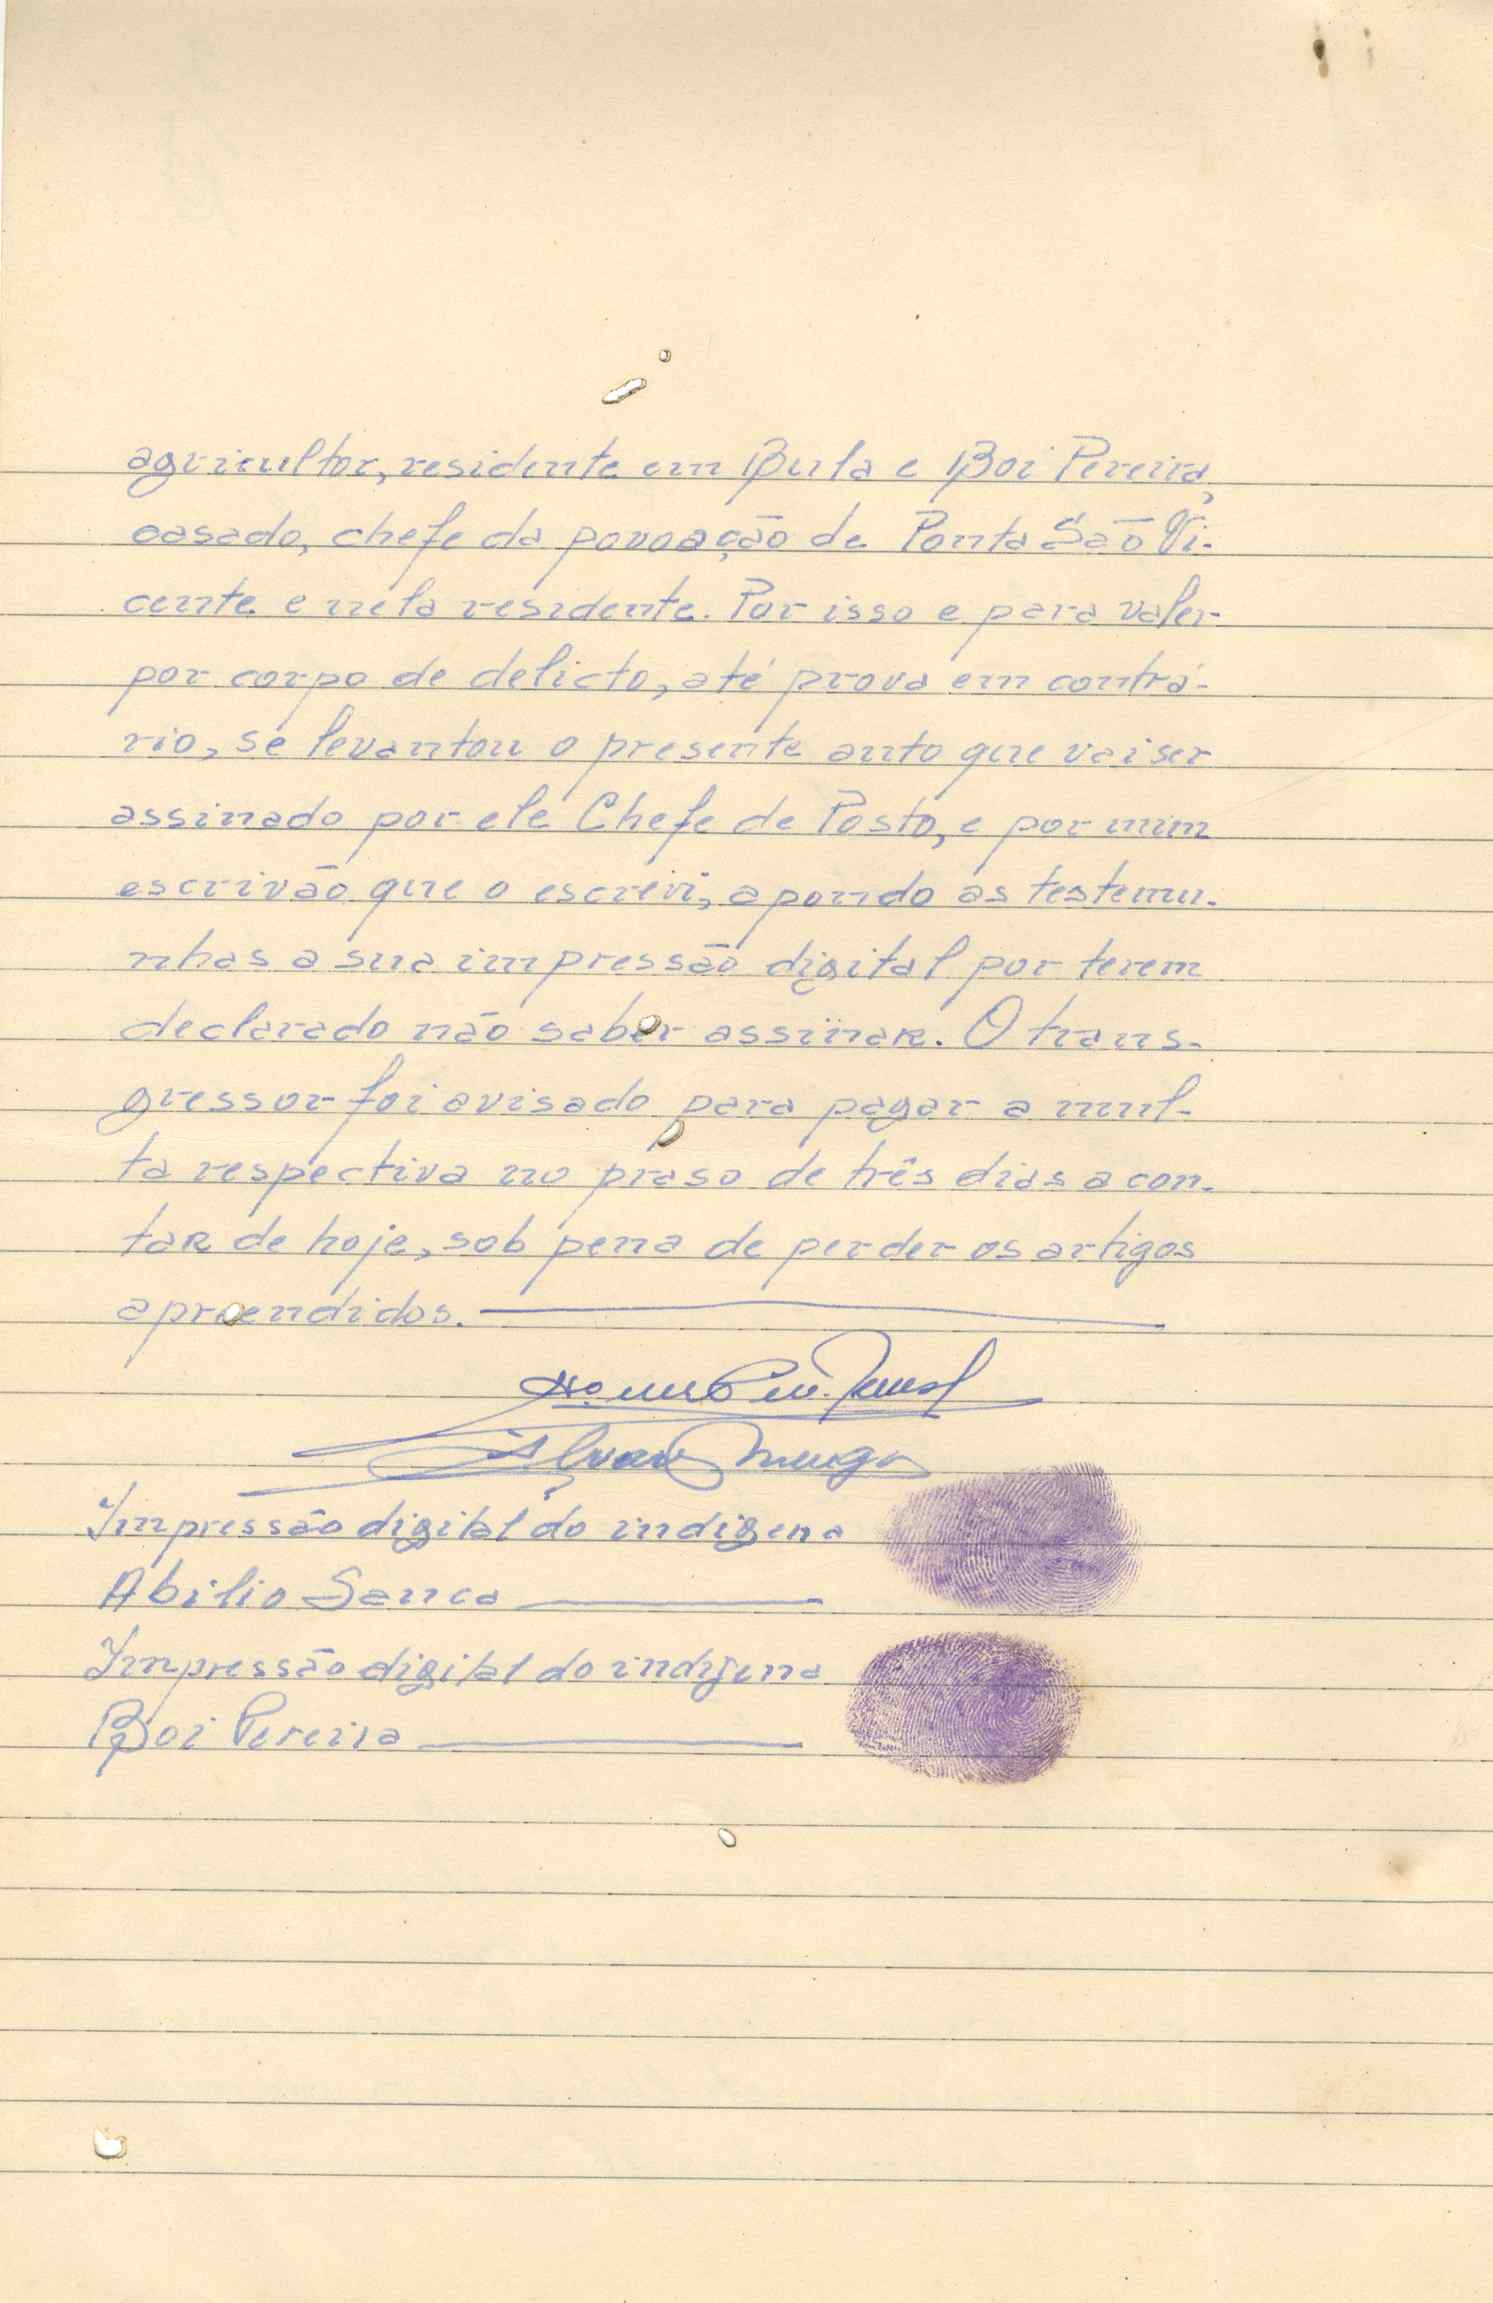 agricultor, residente em Bula e Boi Pereira,
casado, chefe da povoação de Ponta São Vi-
cente e nela residente. Por isso e para valer
por corpo de delicto, até prova em contrá-
rio, se levantou o presente auto que vai ser
assinado por ele Chefe de Posto, e por mim
escrivão que o escrevi, apondo as testemu-
nhas a sua impressão digital por terem
declarado não saber assinar. O trans-
gressor foi avisado para pagar a mul-
ta respectiva no praso de três dias a con-
tar de hoje, sob pena de perder os artigos
apreendidos.
Impressão digital do indigena
Abilio Sanca
Impressão digital do indigena
Boi Pereira